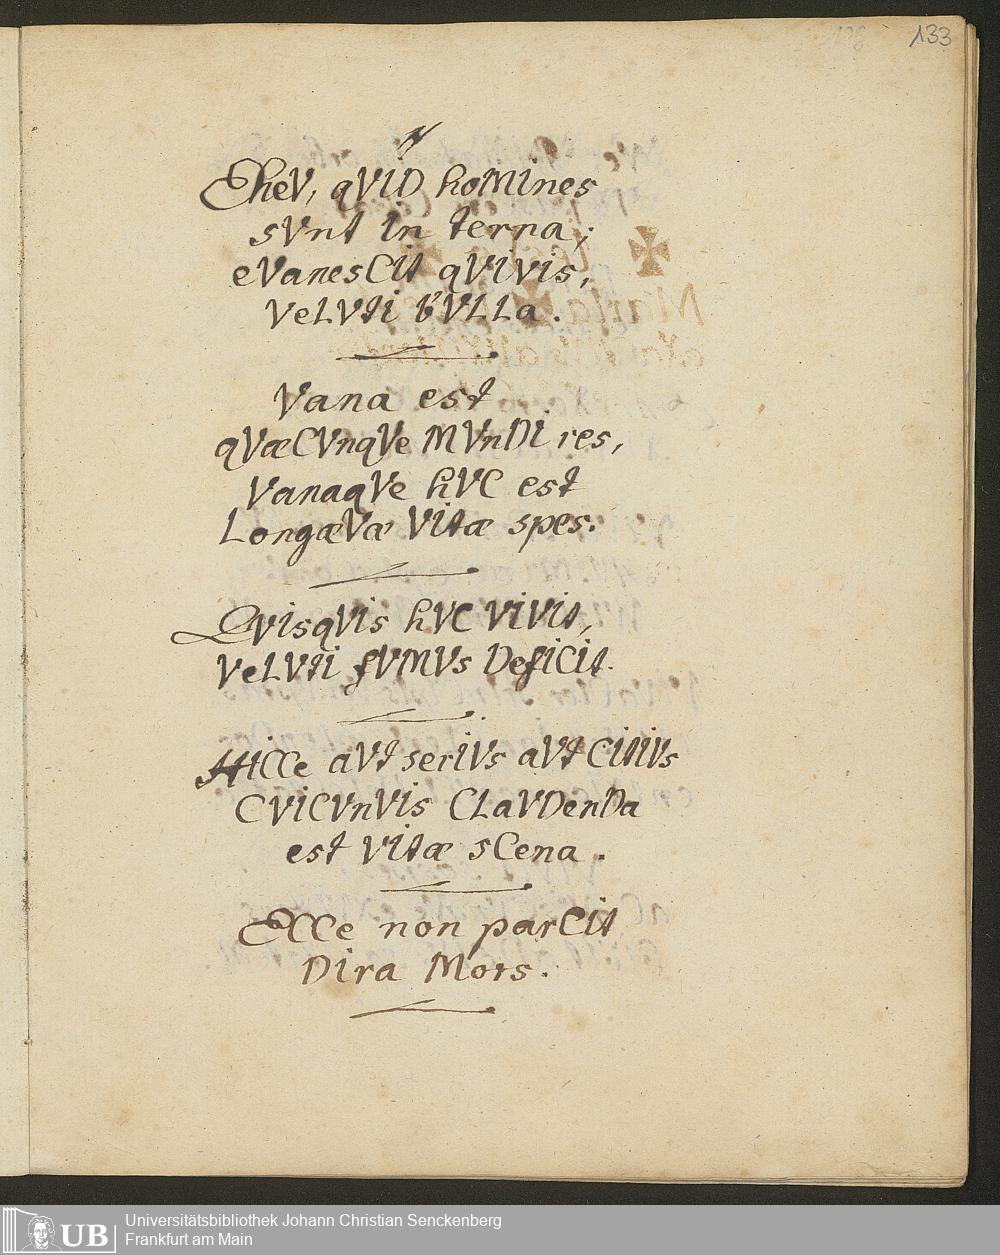 133
EheV, qVID hoMines
sVnt In terna;
eVanesCit qVIVis,
VeLVti bVLLa.
Vana est
qVæCVnqVe MVnDI res,
VanaqVe hVC est
LongæVæ VItæ spes.
QVisqVis hVC VIVit,
VeLVti fVMVs DefICIt.
HICCe aVt serIVs aVt CItIVs
CVICVnVIs CLaVDenDa
est VItæ sCena.
ECCe non parCit
DIra Mors.
Universitätsbibliothek Johann Christian Senckenberg
Frankfurt am Main
UB